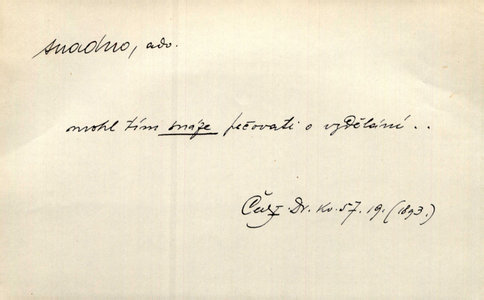 snadno, adv.
mohl tím snáze pečovati o vzdělání..
Dr. Kv. 57. 19. (1893.)